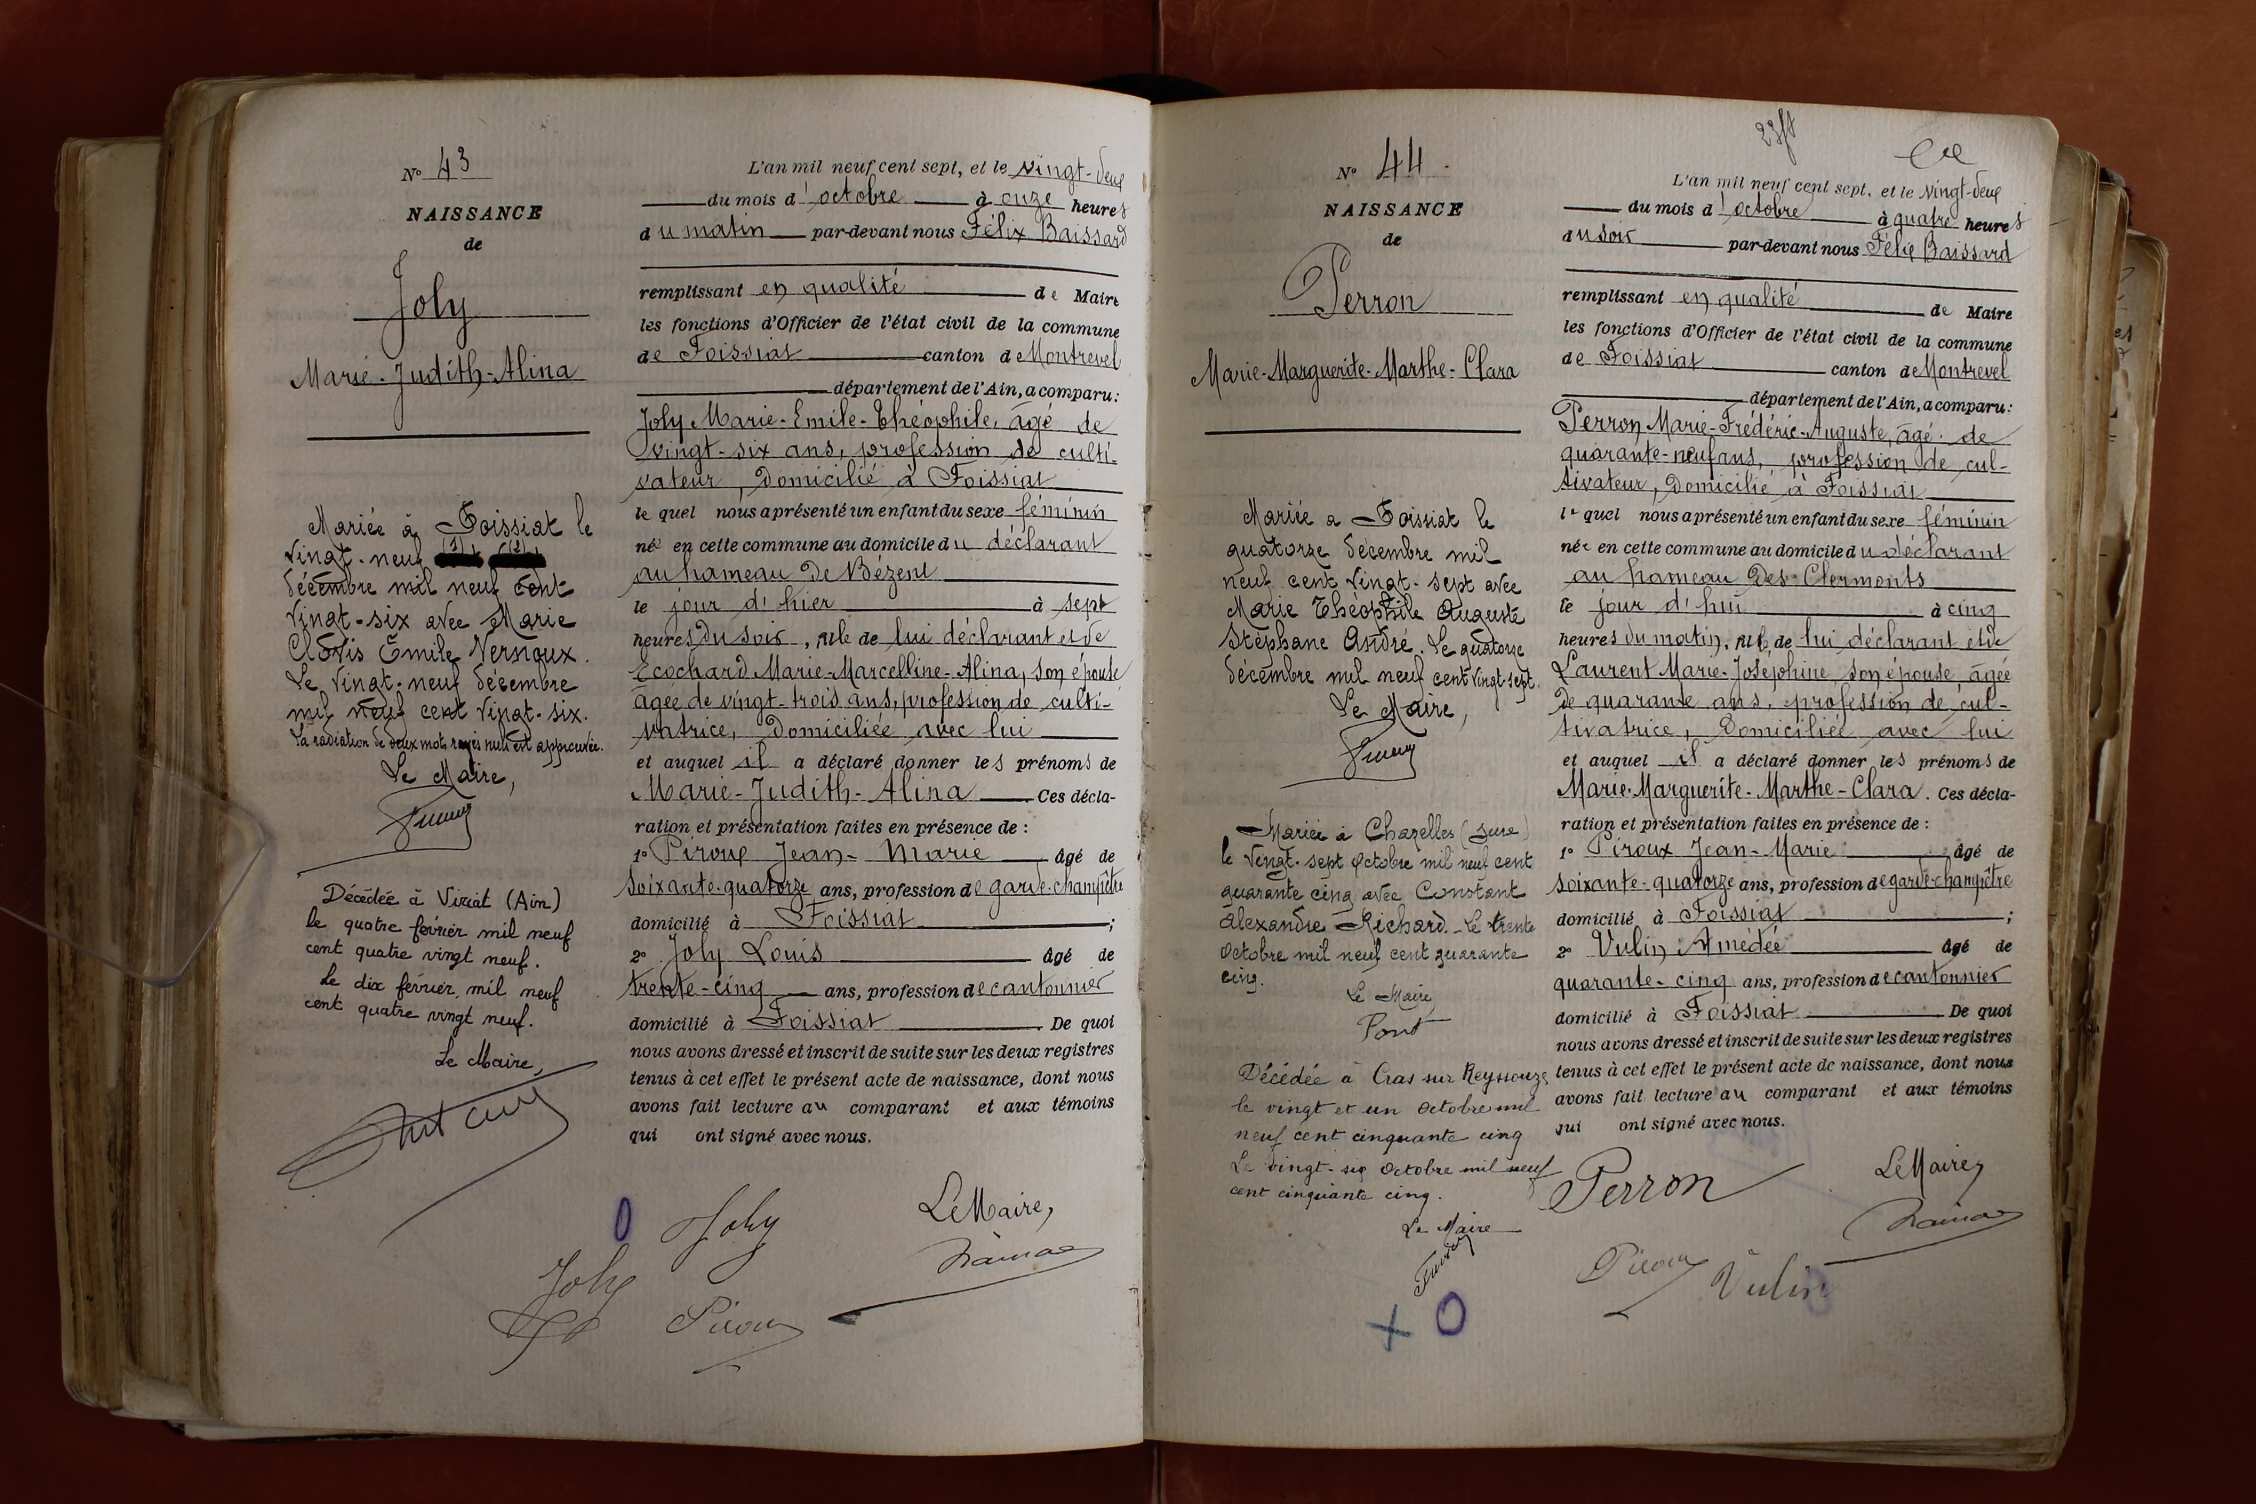 N° 43
NAISSANCE
de
Joly
Marie-Judith-Alina
Mariée à Foissiat le
vingt-neuf (1) (2)
décembre mil neuf cent
vingt-six avec Marie
Clovis Emile Vernoux.
Le vingt-neuf décembre
mil neuf cent vingt-six.
La radiation de deux mots rayés nuls est approuvée.
Le Maire,
Décédée à Viriat (Ain)
le quatre février mil neuf
cent quatre vingt neuf.
Le dix février mil neuf
cent quatre vingt neuf.
Le Maire,
L'an mil neuf cent sept, et le vingt-deux
du mois d'octobre à onze heures
du matin par-devant nous Félix Baissard
remplissant en qualité de Maire
les fonctions d'Officier de l'état civil de la commune
de Foissiat canton de Montrevel
département de l'Ain, a comparu:
Joly Marie-Emile-Théophile, âgé de
vingt-six ans, profession de culti-
vateur, domicilié à Foissiat
le quel nous a présenté un enfant du sexe féminin
née en cette commune au domicile du déclarant
au hameau de Bézent
le jour d'hier à sept
heures du soir, fille de lui déclarant et de
Ecochard Marie-Marcelline-Alina, son épouse
âgée de vingt-trois ans, profession de culti-
vatrice, domiciliée avec lui
et auquel il a déclaré donner les prénoms de
Marie-Judith-Alina Ces décla-
ration et présentation faites en présence de :
1° Piroux Jean-Marie âgé de
soixante-quatorze ans, profession de garde-champêtre
domicilié à Foissiat ;
2° Joly Louis âgé de
trente-cinq ans, profession de cantonnier
domicilié à Foissiat De quoi
nous avons dressé et inscrit de suite sur les deux registres
tenus à cet effet le présent acte de naissance, dont nous
avons fait lecture au comparant et aux témoins
qui ont signé avec nous.
Joly
Le Maire,
Joly
Piroux
N° 44.
NAISSANCE
de
Perron
Marie-Marguerite-Marthe-Clara
Mariée a Foissiat le
quatorze décembre mil
neuf cent vingt-sept avec
Marie Théophile Auguste
Stéphane André. Le quatorze
décembre mil neuf cent vingt-sept.
Le Maire,
Mariée à Chazelles (Jura)
le vingt-sept octobre mil neuf cent
quarante cinq avec Constant
Alexandre Richard. Le trente
octobre mil neuf cent quarante
cinq.
Le Maire
Pont
Décédée à Cras sur Reyssouze
le vingt et un octobre mil
neuf cent cinquante cinq
Le vingt-six octobre mil neuf
cent cinquante cinq.
Le Maire
L'an mil neuf cent sept, et le vingt-deux
du mois d'octobre à quatre heures
du soir par-devant nous Félix Baissard
remplissant en qualité de Maire
les fonctions d'Officier de l'état civil de la commune
de Foissiat canton de Montrevel
département de l'Ain, a comparu:
Perron Marie-Frédéric-Auguste, âgé de
quarante-neuf ans, profession de cul-
tivateur, domicilié à Foissiat
le quel nous a présenté un enfant du sexe féminin
née en cette commune au domicile du déclarant
au hameau des Clermonts
le jour d'hui à cinq
heures du matin, fille de lui déclarant et de
Laurent Marie-Joséphine son épouse âgée
de quarante ans, profession de cul-
tivatrice, domiciliée avec lui
et auquel il a déclaré donner les prénoms de
Marie-Marguerite-Marthe-Clara. Ces décla-
ration et présentation faites en présence de :
1° Piroux Jean-Marie âgé de
soixante-quatorze ans, profession de garde-champêtre
domicilié à Foissiat ;
2° Vulin Amédée âgé de
quarante-cinq ans, profession de cantonnier
domicilié à Foissiat De quoi
nous avons dressé et inscrit de suite sur les deux registres
tenus à cet effet le présent acte de naissance, dont nous
avons fait lecture au comparant et aux témoins
qui ont signé avec nous.
Perron
Le Maire,
Piroux
Vulin